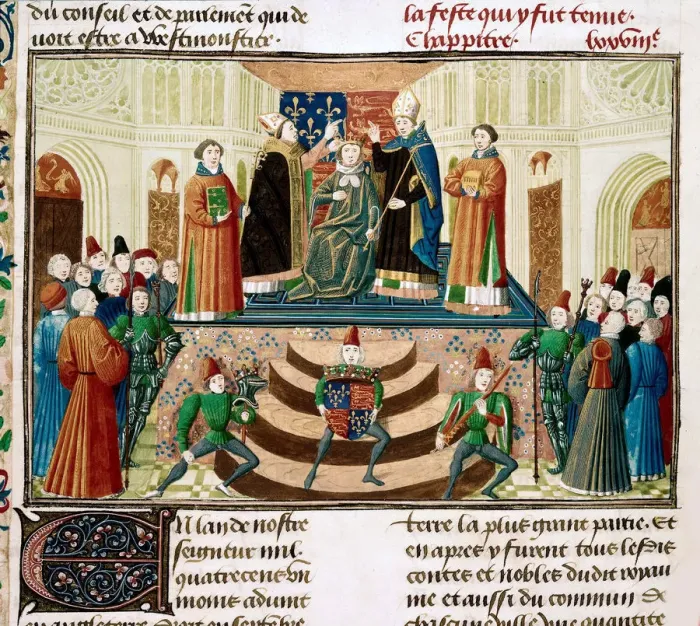 du conseil et de parlement qui de
voit estre a Westmonstier.
la feste qui y fut tenue.
Chappitre. lxxviiiᵉ
En lan de nostre
seigneur mil.
quatrecent un
moins advint
en angleterre
terre la plus grant partie. Et
en apres y furent tous lesdis
contes et nobles dudit royau
me et aussi du commun de